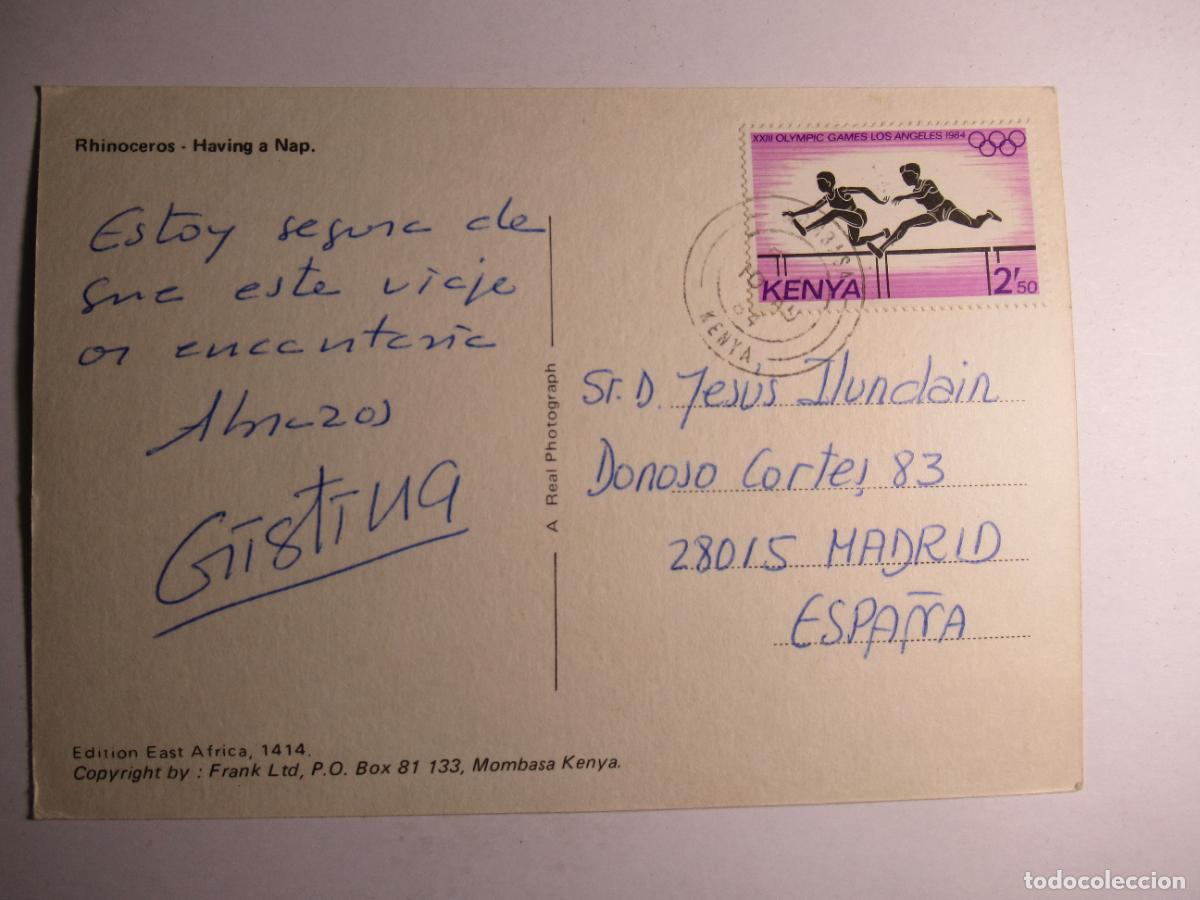 Rhinoceros - Having a Nap.
Estoy segura de
que este viaje
os encantaría
Abrazos
Cristina
A Real Photograph
XXIII OLYMPIC GAMES LOS ANGELES 1984
KENYA 2/50
KENYA
84
Sr. D. Jesús Ilundain
Donoso Cortes, 83
28015 MADRID
ESPAÑA
Edition East Africa, 1414.
Copyright by : Frank Ltd, P.O. Box 81 133, Mombasa Kenya.
todocoleccion